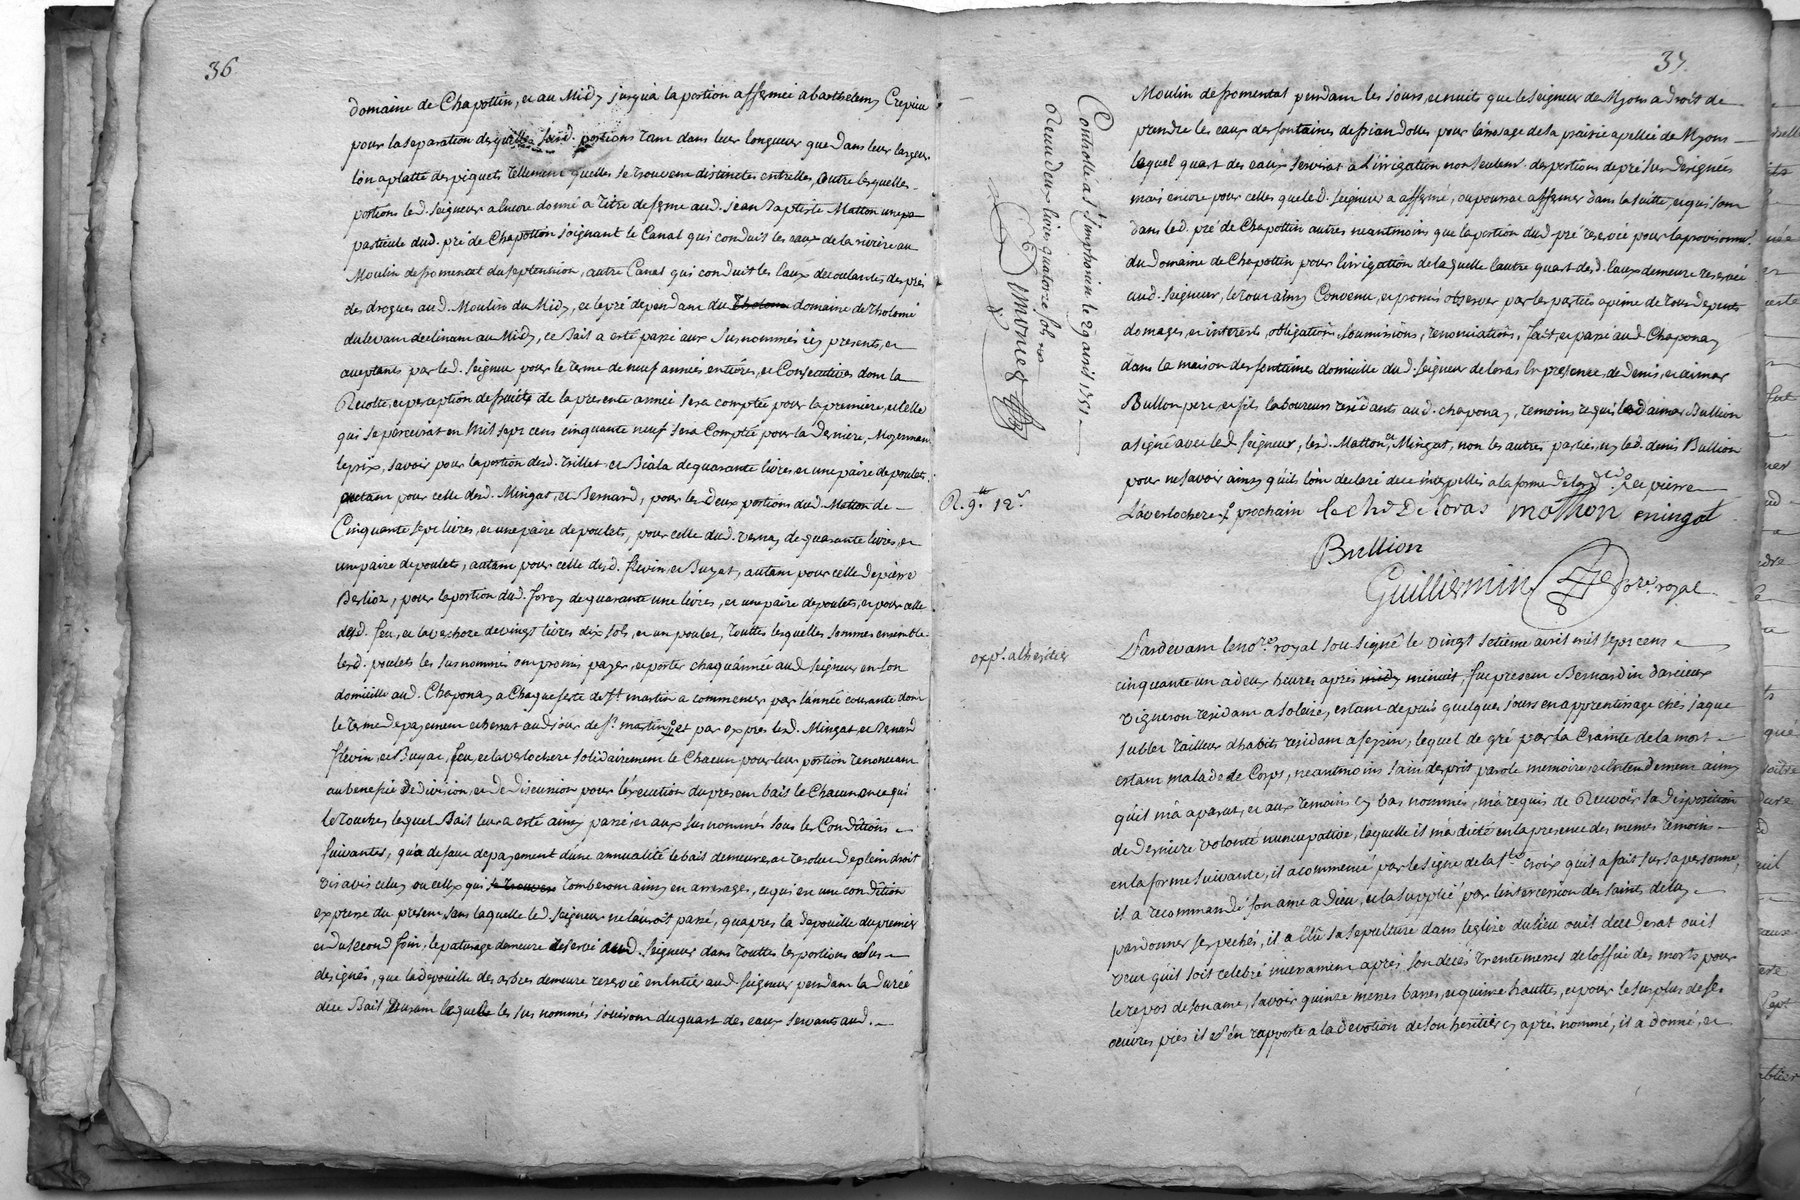 36
domaine de Chapottin, et au Midy jusqua la portion affermée a barthelemy Crepieu
pour la separation desquelles susd. portions tant dans leur longueur que dans leur largeur
lon a platté des piquets tellement quelles se trouvent distinctes entrelles, outre lesquelles
portions led. seigneur a encore donné a titre de ferme aud. jean Baptiste Matton une pa
particule dud. pré de Chapottin joignant le Canal qui conduit les eaux de la riviere au
Moulin de fromental du septention, autre Canal qui conduit les Eaux decoulantes des prés
des drogues aud. Moulin du Midy, et le pré dependant du Tholome domaine de Tholomé
du levant declinant au Midy, ce Bail a esté passé aux susnommés icy presents, et
aceptants par led. seigneur pour le terme de neuf années entieres, et Consecutives dont la
Recolte, et perception de fruits de la presente année sera comptée pour la premiere, et celle
qui se percevrat en Mil sept cens cinquante neuf sera Comptée pour la derniere, Moyennant
le prix, savoir pour la portion desd. trillet et Biala de quarante livres et une paire de poulets,
autant pour celle desd. Mingat, et Bernard, pour les deux portions dud. Matton de
Cinquante sept livres, et une paire de poulets, pour celle dud. vernay de quarante livres, et
une paire de poulets, autant pour celle desd. flevin, et Buyat, autant pour celle de pierre
Berlioz, pour la portion dud. forey de quarante une livres, et une paire de poulets, et pour celle
desd. feu, et laverlochere de vingt livres dix sols, et un poulet, touttes lesquelles sommes ensemble
lesd. poulets les susnommés ont promis payer, et porter chaquannée aud. seigneur en son
domicille aud. Chaponay a Chaque feste de st martin a commencer par l'année courante dont
le terme de payement echerrat au jour de st. martin, et par exprés lesd. Mingat, et Bernard
flevin, et Buyat, feu, et laverlochere solidairement le Chacun pour leur portion renoncant
au benefice de division, et de discussion pour l'execution du present bail le Chacun en ce qui
le touche, lequel Bail leur a esté ainsy passé, et aux susnommés sous les Conditions
suivantes, qua defaut de payement d'une annualité le bail demeurerat resolu de plein droit
vis avis celuy ou ceux qui se trouvent tomberont ainsy en arrerages, ce qui en une condition
expresse du present sans laquelle led. seigneur ne lauroit passé, quapres la depouille du premier
et du second foin, le paturage demeure reservé aud. seigneur dans touttes les portions cy sus
designés, que la depouille des arbres demeure reservée en Entier aud. seigneur pendant la durée
dece Bail, Durant laquelle les susnommés jouiront du quart des eaux servants aud.
37
Moulin de fromental pendant les jours, et nuits que le seigneur de Myons a droit de
prendre les eaux des fontaines de friandolles pour l'arrosage de la prairie apellée de Myons
lequel quart des eaux servirat a L'irrigation non seulemt des portions de pré sus designées
mais encore pour celles que led. seigneur a affermé, ou pourrat affermer dans la suitte, et qui sont
dans led. pré de Chapottin autres neantmoins que la portion dud. pré reservé pour la provisionn.
du Domaine de Chapottin pour l'irrigation de laquelle l'autre quart desd. Eaux demeure reservé
aud. seigneur, le tout ainsy Convenu, et promis observer par les parties a peine de tous depents
domages, et interests, obligations, soumissions, renonciations, fait, et passé aud Chaponay
dans la maison des fontaines domicille dud. seigneur de loras En presence de denis, et aimar
Bullion pere, et fils laboureurs residants aud. chaponay, temoins requis led aimar Bullion
a signé avec led. seigneur, lesd. Matton, et Mingat, non les autres parties, ny led. denis Bullion
pour ne savoir ainsy quils lont declaré de ce interpellés a la forme de lord.ce
Laverlochere prochain le chr De Loras motton mingat
Bullion
Guilliermin nore. royal
Controllé a St. Simphorien le 29 avril 1751
Receu neuf livres quatorze sols
Simonet
R. 9tt 12s.
exp.e a l'heritier
Pardevant le nore. royal sousigné le vingt setieme avril mil sept cens
cinquante un a deux heures apres midy minuit, fut present Bernardin darcieux
vigneron residant a soleize, estant depuis quelques jours en apprentissage chés jaque
sublet tailleur d'habits residant a seyzin, lequel de gré par la Crainte de la mort
estant malade de Corps, neantmoins sain desprit parole memoire, et Entendement ainsy
qu'il m'a aparut, et aux temoins cy bas nommés, m'a requis de Recevoir sa disposition
de derniere volonté nuncupative, laquelle il m'a dicté en la presence des memes temoins
en la forme suivante, il a commencé par le signe de la ste. croix qu'il a fait sur sa personne,
il a recommandé son ame a Dieu, et la supplié par l'intercession des saints de luy
pardonner ses pechés, il a Elu sa sepulture dans l'eglise du lieu ou il decederat ou il
veut qu'il soit celebré incessament après son decés trente messes de l'office des morts pour
le repos de son ame, savoir quinze messes basses, et quinze hauttes, et pour le surplus de ses
oeuvres pies il s'en rapporte a la devotion de son heritier cy après nommé, il a donné, et